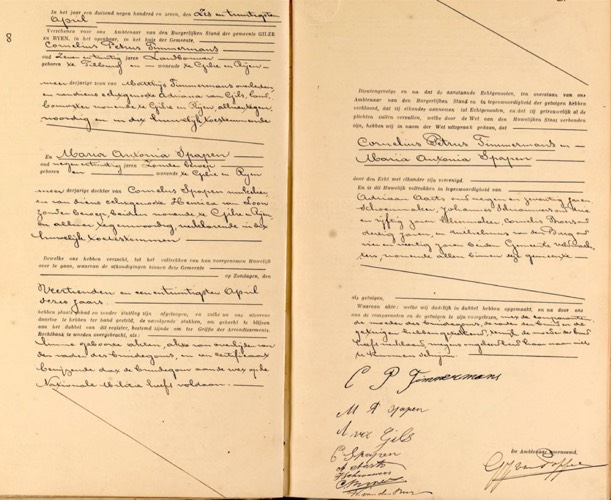 8
In het jaar een duizend negen honderd en zeven, den Zes en twintigste
April
Verschenen voor ons Ambtenaar van den Burgerlijken Stand der gemeente GILZE
en RYEN, in het openbaar, in het huis der Gemeente,
Cornelius Petrus Timmermans
oud Zeven en twintig jaren Landbouwer
geboren te Tilburg en wonende te Gilze en Rijen
meerderjarige zoon van Matthijs Timmermans overleden
en van diens echtgenoote Adriana van Gils,
wonende te Gilze en Rijen alhier tegen-
woordig en in dit huwelijk toestemmende
En Maria Antonia Spapen
oud negen en twintig jaren Zonder beroep
geboren en wonende te Gilze en Rijen
meerderjarige dochter van Cornelius Spapen
en van diens echtgenoote Henrica van Loon
zonder beroep, beiden wonende te Gilze en Rijen,
en alhier tegenwoordig, verklarende in dit
huwelijk toe te stemmen
Dewelke ons hebben verzocht, tot het voltrekken van hun voorgenomen Huwelijk
over te gaan, waarvan de afkondigingen binnen deze Gemeente
op Zondagen, den
Veertienden en een en twintigsten April
dezes jaars
hebben plaats gehad en zonder stuiting zijn afgeloopen, en zulks na ons alvorens
daartoe te hebben ter hand gesteld, de navolgende stukken, om gehecht te blijven
aan het dubbel van dit register, bestemd tijdens om ter Griffie der Arrondissements-
Rechtbank te worden overgebracht, als:
hunne geboorte akten, akte van overlijden van
den vader des bruidegoms, en een certificaat
bewijzende dat de bruidegom aan de wet op de
Nationale Militie heeft voldaan
Dientengevolge en na dat de aanstaande Echtgenooten, ten overstaan van ons
Ambtenaar van den Burgerlijken Stand en in tegenwoordigheid der getuigen hebben
verklaard, dat zij elkander aannemen tot Echtgenooten, en dat zij getrouwelijk al de
plichten zullen vervullen, welke door de Wet aan den Huwelijken Staat verbonden
zijn, hebben wij in naam der Wet uitspraak gedaan, dat
Cornelius Petrus Timmermans en
Maria Antonia Spapen
door den Echt met elkander zijn vereenigd.
En is dit Huwelijk voltrokken in tegenwoordigheid van
Adriaan Aarts oud negen en twintig jaren
Schoenmaker, Johannes Schouwenaars oud drie
en vijftig jaren Kleermaker, Cornelis
dertig jaren, en van den Berg oud
vier en veertig jaren beiden Gemeente veldwach-
ters, wonende allen binnen dit gemeente
als getuigen.
Waarvan akte: welke wij dadelijk in dubbel hebben opgemaakt, en na door ons
aan de comparanten en de getuigen is zijn voorgelezen, met de comparanten
de moeder des bruidegoms, de vader der bruid en de
getuigen hebben geteekend, terwijl de moeder der bruid
heeft verklaard wegens ongeleerdheid haar naam niet
te kunnen schrijven
C P Timmermans
M A Spapen
A van Gils
C Spapen
A Aarts
De Ambtenaar voornoemd,